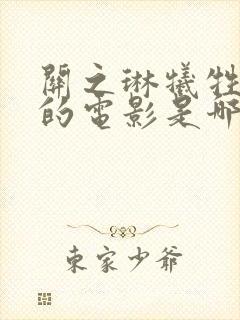 關之琳犧牲
的電影是哪
東家少爺